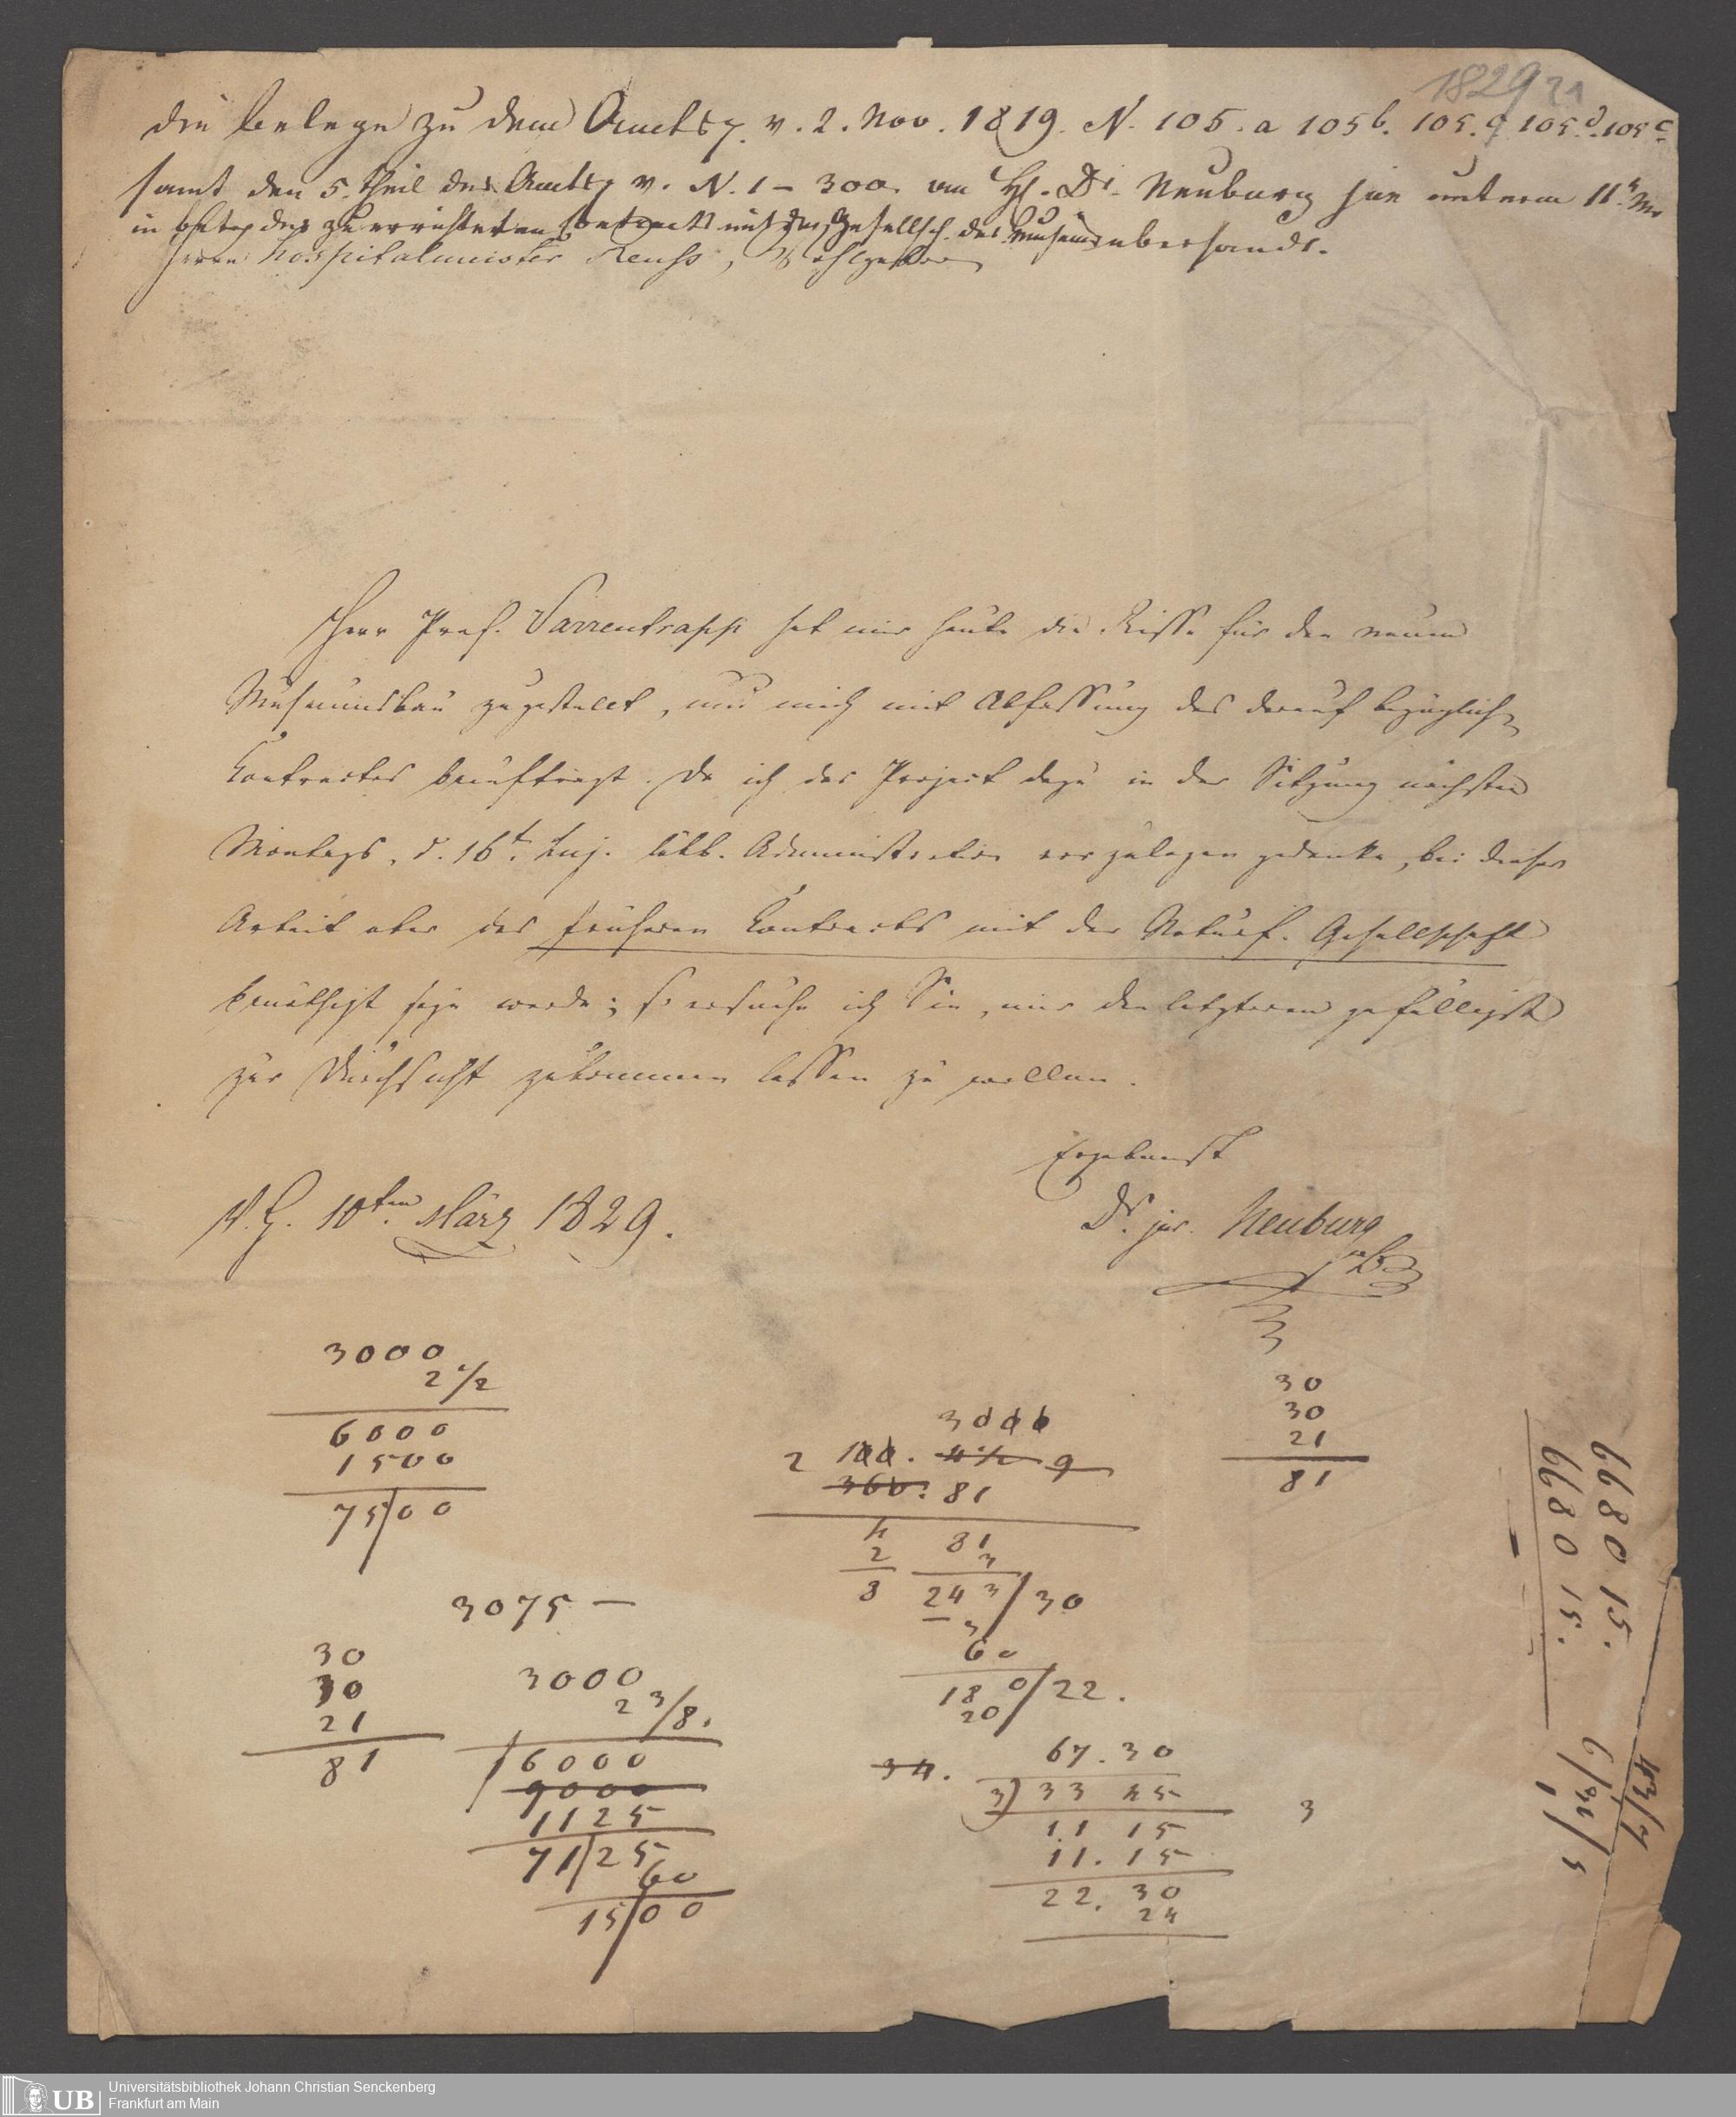 1829 21
die belege zu dem Amtsp. v. 2. Nov. 1819. N. 105. a 105b. 105. c 105.d. 105 e
samt den 5. Theil des Amtsp v. N. 1 – 300. an H. Dr. Neuburg hie unterm 11
in betref des zu errichteten Contracts mit der Gesellsch. des Museums übersandt.
Herrn Hospitalmeister Reuss, Wohlgeboren
Herr Prof. Varrentrapp hat mir heute die Risse für den neuen
Museumsbau zugestellt, und mich mit Abfassung des darauf bezüglichen
Contractes beauftragt. Da ich das Project dazu in der Sitzung nächsten
Montags, d. 16t. huj. löbl. Administration vorzulegen gedenke, bei dieser
Arbeit aber des früheren Contracts mit der Naturf. Gesellschaft
benöthigt seyn werde; so ersuche ich Sie, mir den letzteren gefälligst
zur Durchsicht zukommen lassen zu wollen.
Ergebenst
10ten März 1829.
Dr. jur. Neuburg
3000
2 1/2
6000
1500
75/00
3075 –
30
30
21
81
3000
2 3/8.
6000
9000
1125
71/25
60
15/00
3000
2 100. 4 1/2 9
360. 81
4 81
2 3
8 243/30
3
60
180/22.
20
34.
67.30
3) 33 45
11 15
11.15
22.30
24
3
30
30
21
81
6680 15.
6680 15.